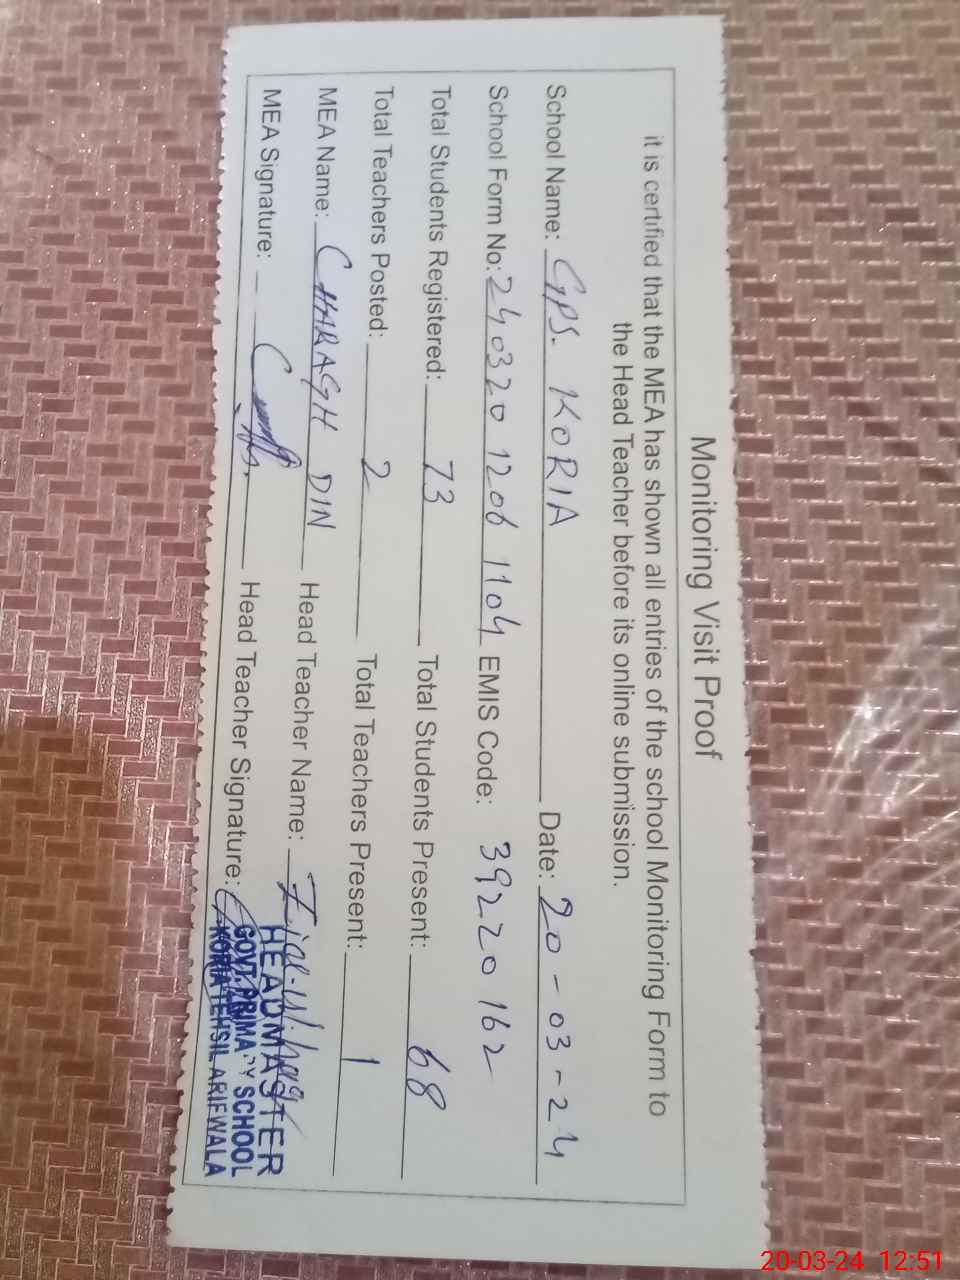 Monitoring Visit Proof
it is certified that the MEA has shown all entries of the school Monitoring Form to
the Head Teacher before its online submission.
School Name: GPS. KORIA Date: 20-03-24
School Form No: 24032012061104 EMIS Code: 39220162
Total Students Registered: 73 Total Students Present: 68
Total Teachers Posted: 2 Total Teachers Present: 1
MEA Name: CHARAGH DIN Head Teacher Name: Zia-ul-haq
MEA Signature: Head Teacher Signature:
HEADMASTER
GOVT. PRIMARY SCHOOL
KORIA TEHSIL ARIFWALA
20-03-24 12:51